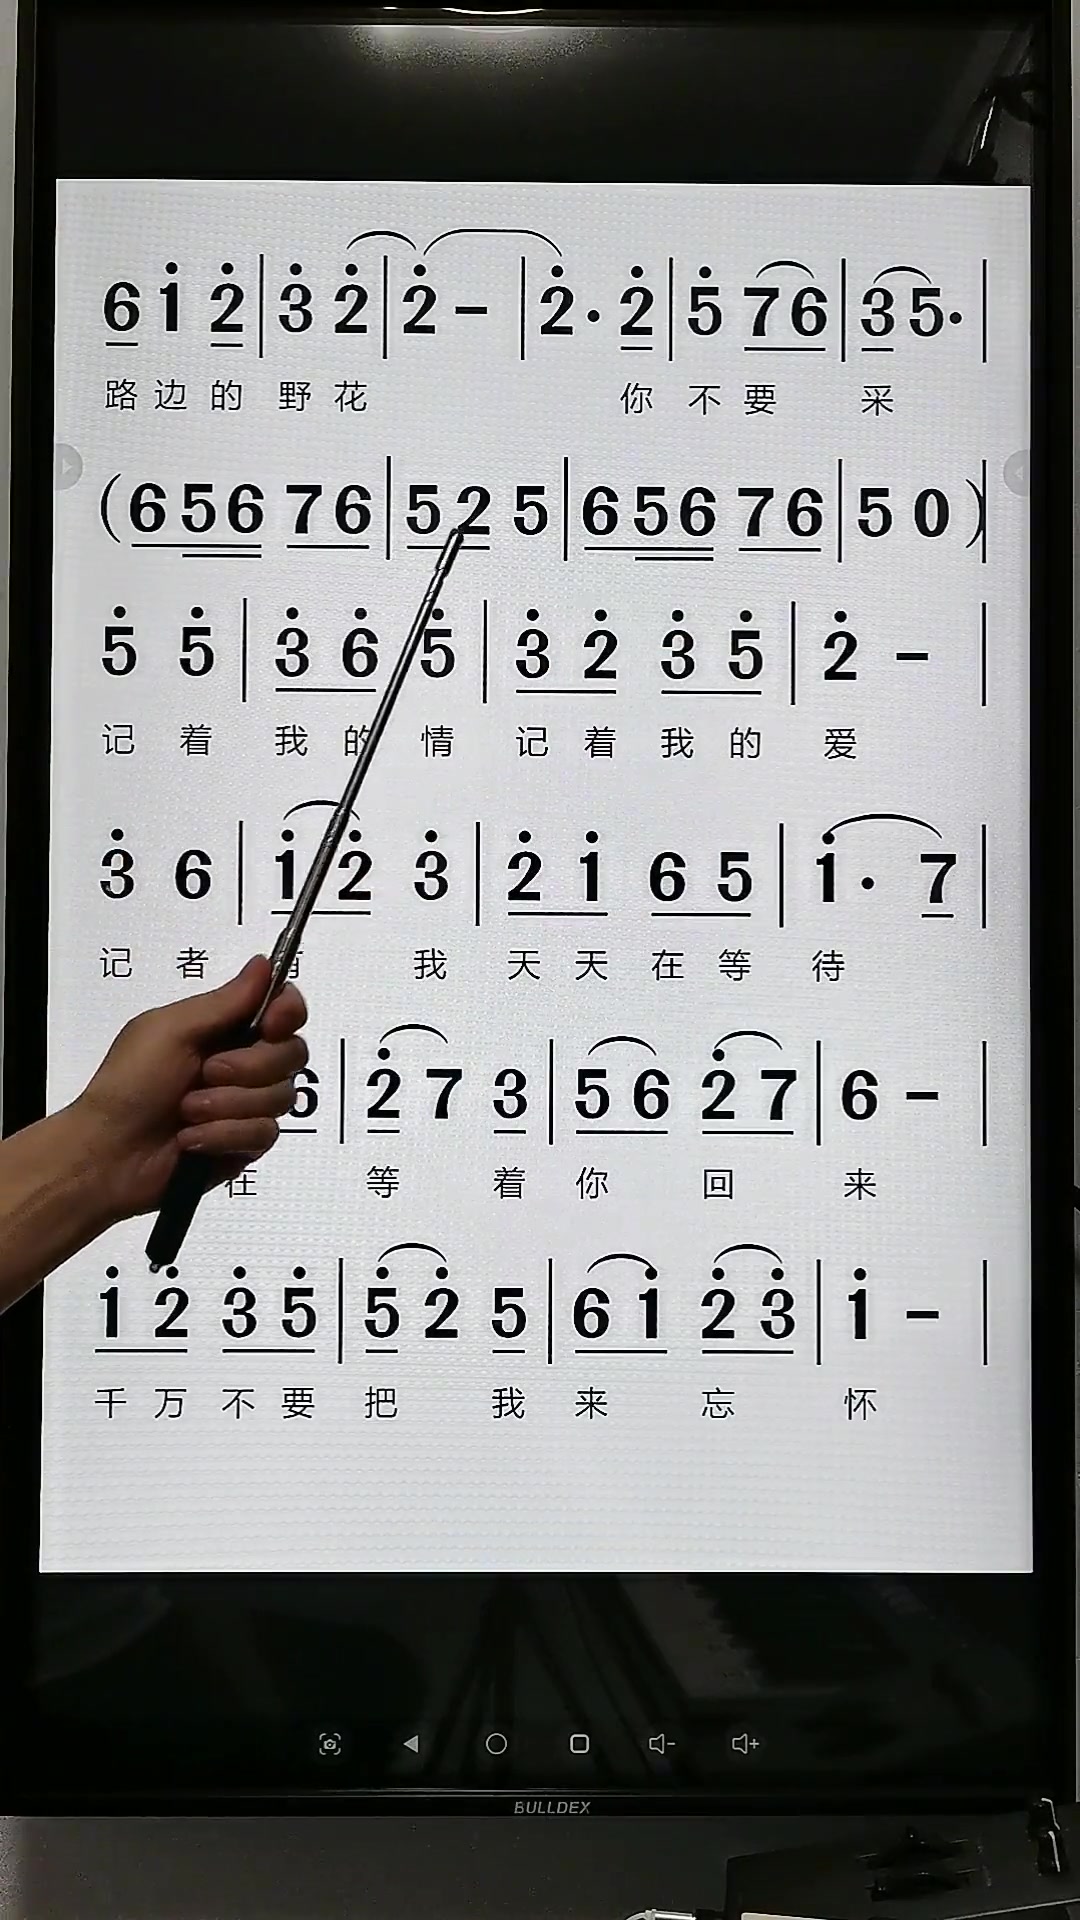 6 1̇ 2̇ | 3̇ 2̇ | 2̇ - | 2̇· 2̇ | 5̇ 7 6 | 3 5· |
路 边 的 野 花 你 不 要 采
(6 5 6 7 6 | 5 2 5 | 6 5 6 7 6 | 5 0)
5̇ 5̇ | 3̇ 6̇ 5̇ | 3̇ 2̇ 3̇ 5̇ | 2̇ - |
记 着 我 的 情 记 着 我 的 爱
3̇ 6 | 1̇ 2̇ 3̇ | 2̇ 1̇ 6 5 | 1̇· 7 |
记 者 有 我 天 天 在 等 待
6 | 2̇ 7 3 | 5 6 2̇ 7 | 6 - |
在 等 着 你 回 来
1̇ 2̇ 3̇ 5̇ | 5̇ 2̇ 5 | 6 1̇ 2̇ 3̇ | 1̇ - |
千 万 不 要 把 我 来 忘 怀
BULLDEX